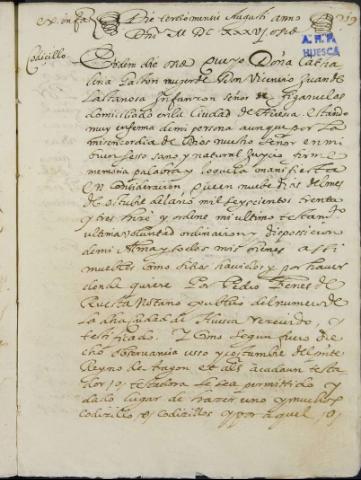 ex. in fa
Die tertio mensis Augusti anno
Dni M DC XXXVI oscæ
A.H.P.
HUESCA
Codicillo
Eodem die oscæ que yo Doña Catha
lina Gastón muger de Don Vicencio Juan de
Lastanosa Infançon señor de figaruelas
domiciliado en la Ciudad de Huesca estando
muy enferma de mi persona aunque por la
misericordia de Dios nuestro Señor en mi
buen sesso sano y natural juycio firme
memoria palabra y loquela manifiesta
en consideracion, que en nuebe dias del mes
de octubre del año mil seyscientos treinta
y tres hize y ordene mi ultimo testamento
ultima voluntad ordinacion y disposicion
de mi Alma y todos mis bienes assi
muebles como sitios havidos y por haver
donde quiere Por Pedro
notario publico del numero de
la dha ciudad de Huesca recevido, y
testificado. Y Como segun fuero die
cho observancia usso y costumbre del pnte
Reyno de Aragon et als a cada un testa
dor, o, testadora le sea permittido y
dado lugar de hazer uno y muchos
Codicillo, o, Codicillos y por aquel, o,